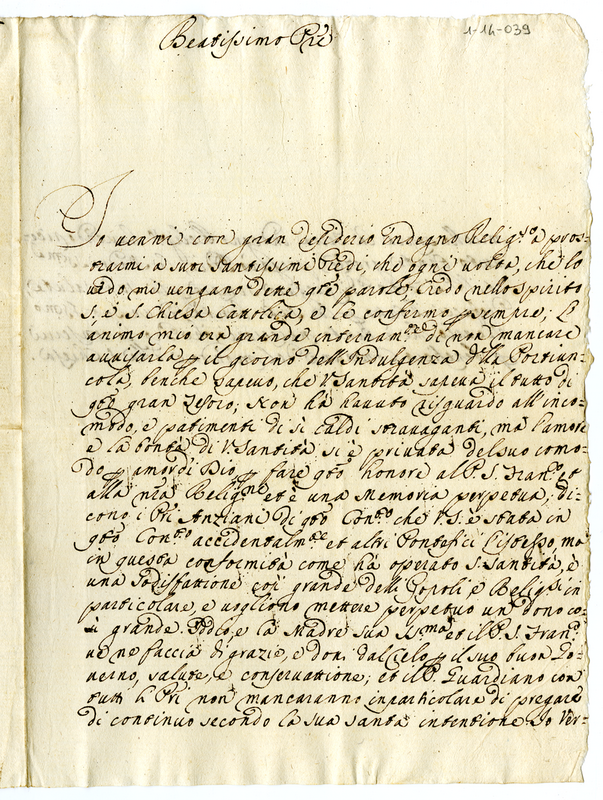 1-14-039
Beatissimo Pre
Io venni con gran desiderio Indegno Religso à pros=
trarmi a suoi Santissimi Piedi, che ogni volta, che lo
vedo mi vengano dette qte parole, Credo nello spirito
S. e S. Chiesa Cattolica, e le confermo p sempre; L
animo mio era grande internamte di non mancare
avvisarla p il giorno dell'Indulgenza dlla Portiun=
cola, benche sapevo, che V Santità sapeva il tutto di
qto gran Tesoro; Non hà havuto risguardo all'inco=
modo, e patimenti di si caldi stravaganti, ma l'amore
e la bontà di V Santità si è privata del suo como=
do p amor di Dio, p fare qto honore al P. S. Franco et
alla nra Religne et è una Memoria perpetua; di=
cono i Pri Anziani di qto Conto che V. S. è stata in
qto Conto accidentalmte et altri Pontefici l'istesso, ma
in questa conformità come hà operato S. Santità, è
una sodisfattione così grande delli Popoli e Religsi in
particolare, e vogliono mettere perpetuo un dono co=
sì grande. Iddio, e la Madre sua SSma et il P. S. Franco
ve ne faccia di grazie, e doni dal Cielo p il suo buon Go=
verno, salute, e conservattione; et il P. Guardiano con
tutti li Pri non mancaranno in particolare di pregare
di continuo secondo la sua santa intentione. Io ver=